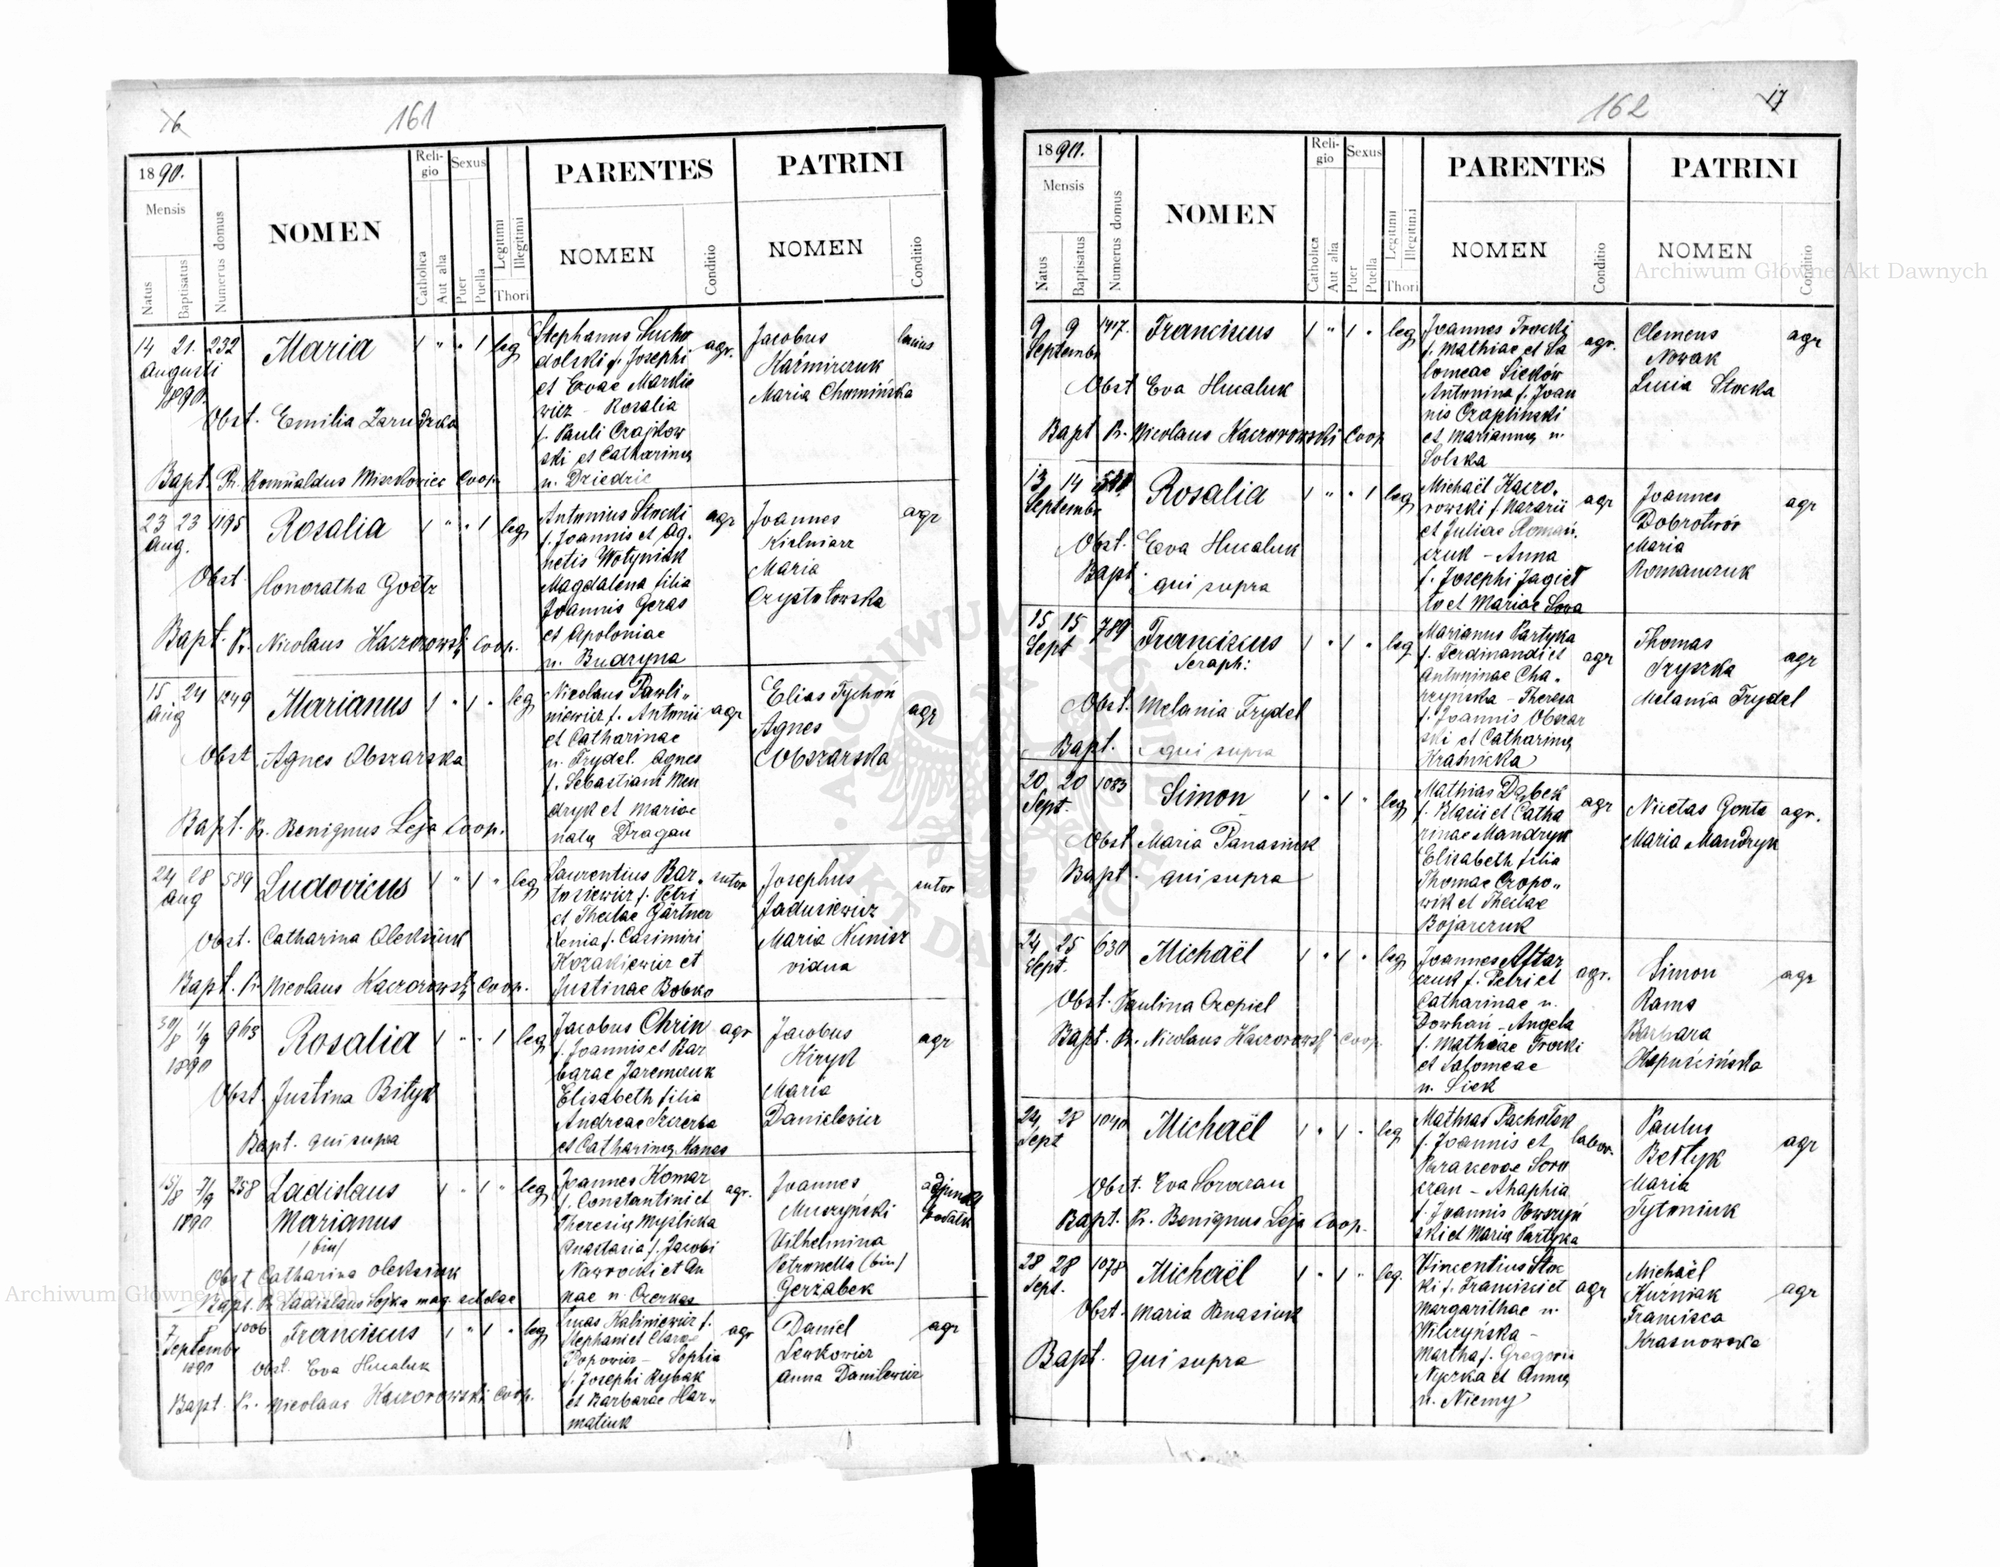 16
161
1890.
Mensis
Natus
Baptisatus
Numerus domus
NOMEN
Religio
Catholica
Aut alia
Sexus
Puer
Puella
Legitimi
Illegitimi
Thori
PARENTES
NOMEN
Conditio
PATRINI
NOMEN
Conditio
14 21. 232 Maria 1 " " 1 leg
Augusti
1890.
Obst. Emilia Zarudzka
Bapt. Pr. Romualdus Coop.
Stephanus Sucho
dolski f. Josephi
et Evae Markie
wicz - Rosalia
f. Pauli Czajkow
ski et Catharinę
n. Dziedzic
agr.
Jacobus
Kaźmirczuk
Maria Chomińska
23 23 1195 Rosalia 1 " " 1 leg
Aug.
Obst. Honoratha Goetz
Bapt. Pr. Nicolaus Kaczorowski Coop.
Antonius Stocki
f. Joannis et Ag-
netis Wołyniak
Magdalena filia
Joannis Geras
et Apoloniae
n. Budzyna
agr
Joannes
Kielniarz
Maria
Czystołowska
agr
15 24 1249 Marianus 1 " 1 " leg
Aug
Obst. Agnes Obszarska
Bapt. Pr. Benignus Leja Coop.
Nicolaus Pawli-
niewicz f. Antonii
et Catharinae
n. Frydel. Agnes
f. Sebastiani Men
dryk et Mariae
natę Dragan
agr
Elias Tychoń
Agnes
Obszarska
agr
24 28 589 Ludovicus 1 " 1 " leg
Aug
Obst. Catharina Oleksiuk
Bapt. Pr. Nicolaus Kaczorowski Coop.
Laurentius Bar-
tosiewicz f. Petri
et Theclae Gärtner
Xenia f. Casimiri
Kozakiewicz et
Justinae Bobko
sutor
Josephus
Jadusiewicz
Maria Kunisz
vidua
sutor
30/8 1/9 963 Rosalia 1 " " 1 leg
1890
Obst. Justina Bityk
Bapt. qui supra
Jacobus Chrin
f. Joannis et Bar
barae Jaremczuk
Elisabeth filia
Andreae Szczerba
et Catharinę Kanas
agr
Jacobus
Kiryk
Maria
Danielewicz
agr
15/8 7/9 258 Ladislaus 1 " 1 " leg
1890 Marianus
/bin/
Obst Catharina Oleksiuk
Bapt. Pr. Ladislaus Sojka mag. scholae
Joannes Komar
f. Constantini et
Theresię Myślicka
Anastasia f. Jacobi
Nawrocki et An
nae n. Czerkas
agr.
Joannes
Muczyński
Wilhelmina
Petronella (bin)
Gerżabek
adjunkt
podatk
7 8 1006 Franciscus 1 " 1 " leg
Septembr
1890
Obst. Eva Hucaluk
Bapt. Pr. Nicolaus Kaczorowski Coop.
Lucas Kaliniewicz f.
Stephani et Clarae
Popowicz - Sophia
f. Josephi Rybak
et Barbarae Har-
matiuk
agr
Daniel
Lewkowicz
Anna Danilewicz
agr
162
17
1890.
Mensis
Natus
Baptisatus
Numerus domus
NOMEN
Religio
Catholica
Aut alia
Sexus
Puer
Puella
Legitimi
Illegitimi
Thori
PARENTES
NOMEN
Conditio
PATRINI
NOMEN
Conditio
9 9 1417. Franciscus 1 " 1 " leg
Septembr
Obst Eva Hucaluk
Bapt Pr. Nicolaus Kaczorowski Coop
Joannes Trocki
f. Mathiae et Sa
lomeae Sieków
Antonina f. Joan
nis Czaplinski
et Mariannę n.
Solska
agr.
Clemens
Nowak
Lucia Stocka
agr
13 14 Rosalia 1 " " 1 leg
Septembr
Obst. Eva Hucaluk
Bapt. qui supra
Michaël Kaczo-
rowski f. Nazarii
et Juliae Romań-
czuk - Anna
f. Josephi Jagieł
ło et Mariae Sowa
agr
Joannes
Dobrotwór
Maria
Romanczuk
agr
15 15 789 Franciscus 1 " 1 " leg
Sept Seraph:
Obst. Melania Frydel
Bapt. qui supra
Marianus Partyka
f. Ferdinandi et
Antoninae Cha-
rzyńska - Theresa
f. Joannis Obszar
ski et Catharinę
Kraśnicka
agr
Thomas
Fryszka
Melania Frydel
agr
20 20 1083 Simon 1 " 1 " leg
Sept.
Obst Maria Panasiuk
Bapt. qui supra
Mathias Dąbek
f. Blasii et Catha
rinae Mandryk
Elisabeth filia
Thomae Czopo-
wik et Theclae
Bojarczuk
agr
Nicetas Gonta
Maria Mandryk
agr.
24 25 630 Michaël 1 " 1 " leg
Sept.
Obst. Paulina Czepiel
Bapt. Pr. Nicolaus Kaczorowski Coop.
Joannes Aftar
czuk f. Petri et
Catharinae n.
Dowhań - Angela
f. Mathiae Trocki
et Salomeae
n. Siek
agr.
Simon
Rams
Barbara
Kapuścińska
agr
24 28 1040 Michaël 1 " 1 " leg
Sept
Obst. Eva Soroczan
Bapt. Pr. Benignus Leja Coop.
Mathias Pachołek
f. Joannis et
Paraxevae Soro
czan - Ahaphia
f. Joannis
ski et Marię Partyka
labor.
Paulus
Bełtyk
Maria
Tytoniuk
agr
28 28 1078 Michaël 1 " 1 " leg.
Sept.
Obst. Maria Panasiuk
Bapt. qui supra
Vincentius Stoc
ki f. Francisci et
Margarithae n.
Wilczyńska -
Martha f. Gregorii
Nyczka et Annę
n. Niemy
agr
Michaël
Kuzniak
Francisca
Krasnowska
agr
Archiwum Główne Akt Dawnych
Archiwum Główne Akt Dawnych
ARCHIWUM GŁÓWNE AKT DAWNYCH